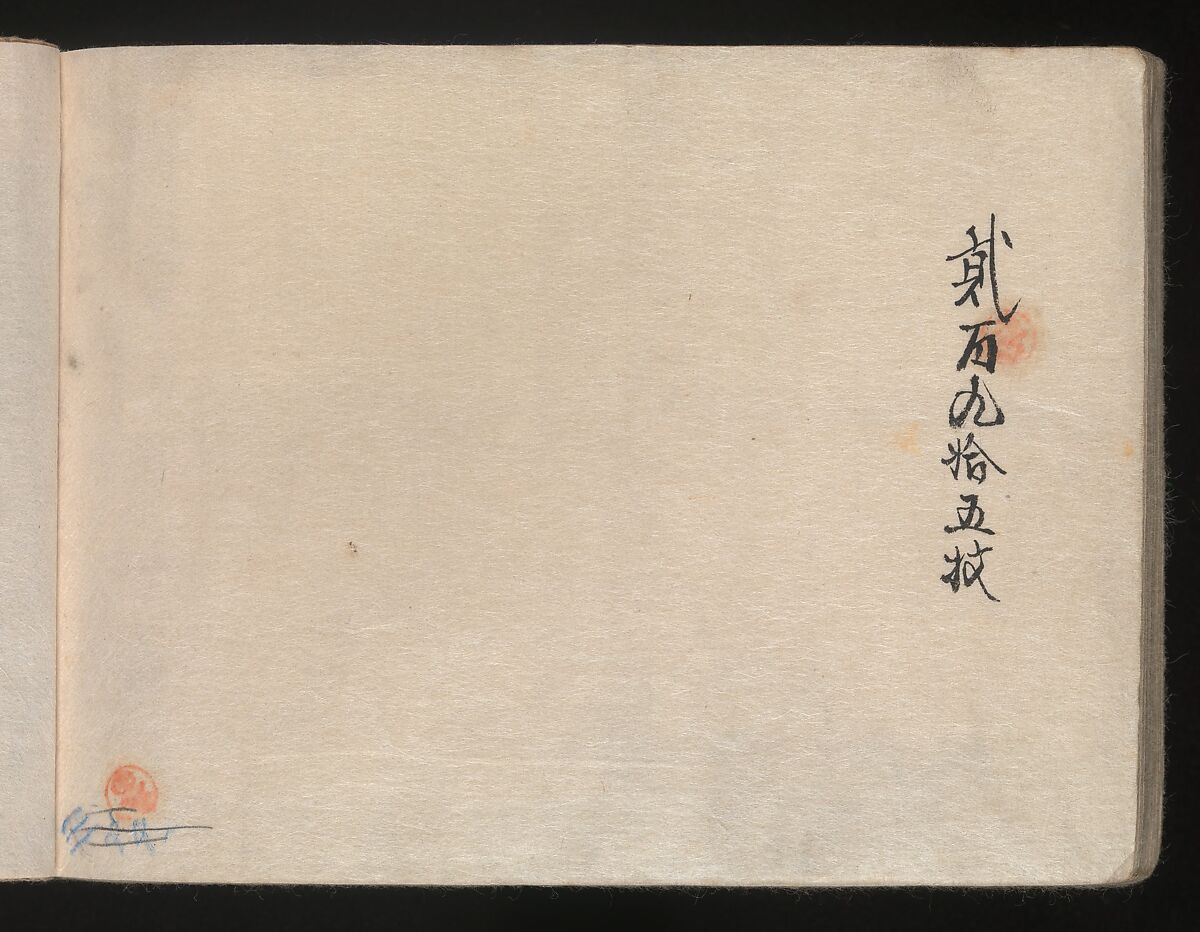 貳百九拾五枚